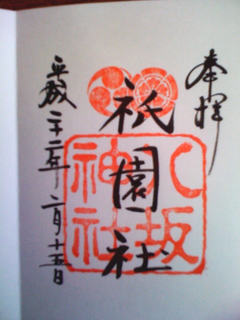 奉拝
八坂神社
祇園社
平成二十二年二月十五日